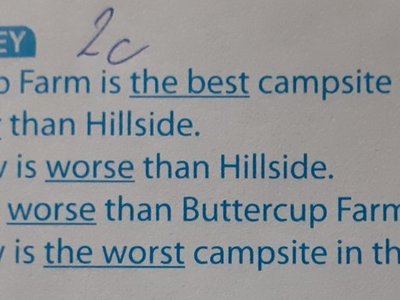 EY 2c
p Farm is the best campsite
than Hillside.
y is worse than Hillside.
worse than Buttercup Farm
y is the worst campsite in th